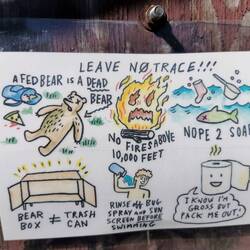 LEAVE NO TRACE!!!
A FED BEAR IS A DEAD
BEAR
NO FIRES ABOVE
10,000 FEET
NOPE 2 SOAP
BEAR ≠ TRASH
BOX CAN
RINSE off BUG
SPRAY and SUN
SCREEN BEFORE
SWIMMING
I KNOW I'M
GROSS BUT
PACK ME OUT!